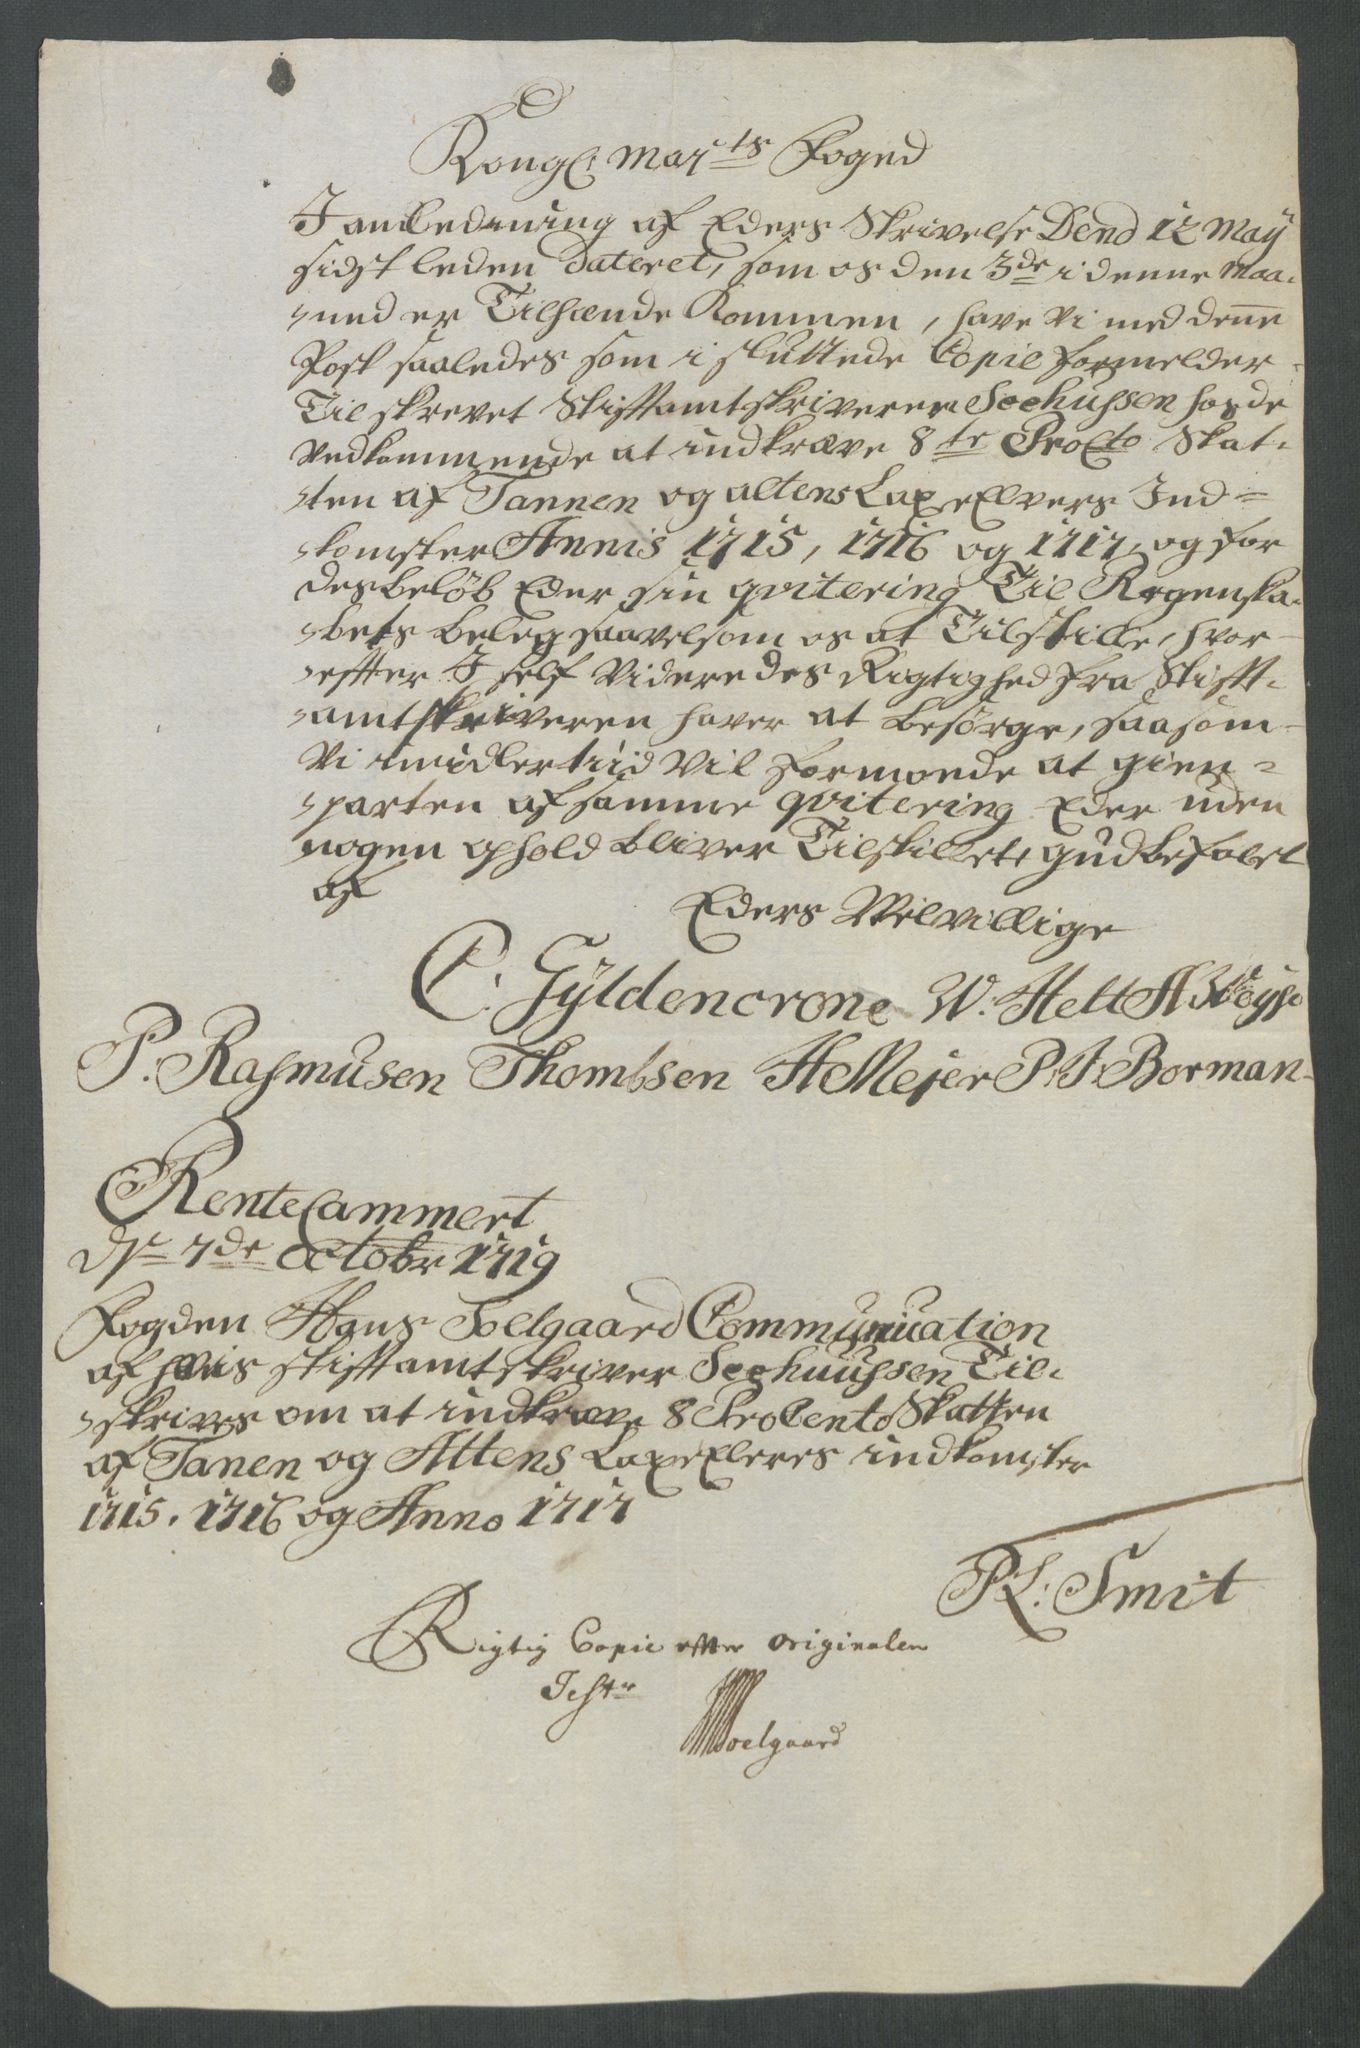 Kongl. May:ts Foged
J anledning af Eders Skrivelse Dend 12 Maÿ
sidst leden Dateret, som os den 3de i denne Maa-
-ned er Tilhænde Kommen, have Vi med deñe
Post saaledes som i sluttede Copie formelder
Tilskrevet Stiftamtskriveren Seehussen hos de
Vedkommende at indkræve 8te ProCto Skat-
-ten af Tannen og altens Laxe Elvers Ind-
-komster Annis 1715, 1716 og 1717, og for
des beløb Eder sin qvitering Til Regenska-
-bets beleg saavelsom os at Tilstille, hvor-
-effter J self Videre des Rigtighed fra Stift-
-amtskriveren haver at besørge, saasom
Vi imidlertiid Vil formoede at gien-
-parten af samme qvitering Eder uden
nogen ophold bliver Tilstillet, gud befalet
af
Eders Velvillige
C. Gÿldencrone W. Hellt A Weyse
P. Rasmusen Thombsen H Mejer P. J. Borman
RenteCammert
dn 7de octobr 1719
Fogden Hans Soelgaard Communication
af hvis stiftamtskriver Seehuussen Til-
-skrives om at indkræve 8 ProCento Skatten
af Tanen og Altens Laxe Elvres indkomster
1715. 1716 og Anno 1717
PL: Smit
Rigtig Copie effter originalen
Test
Soelgaard